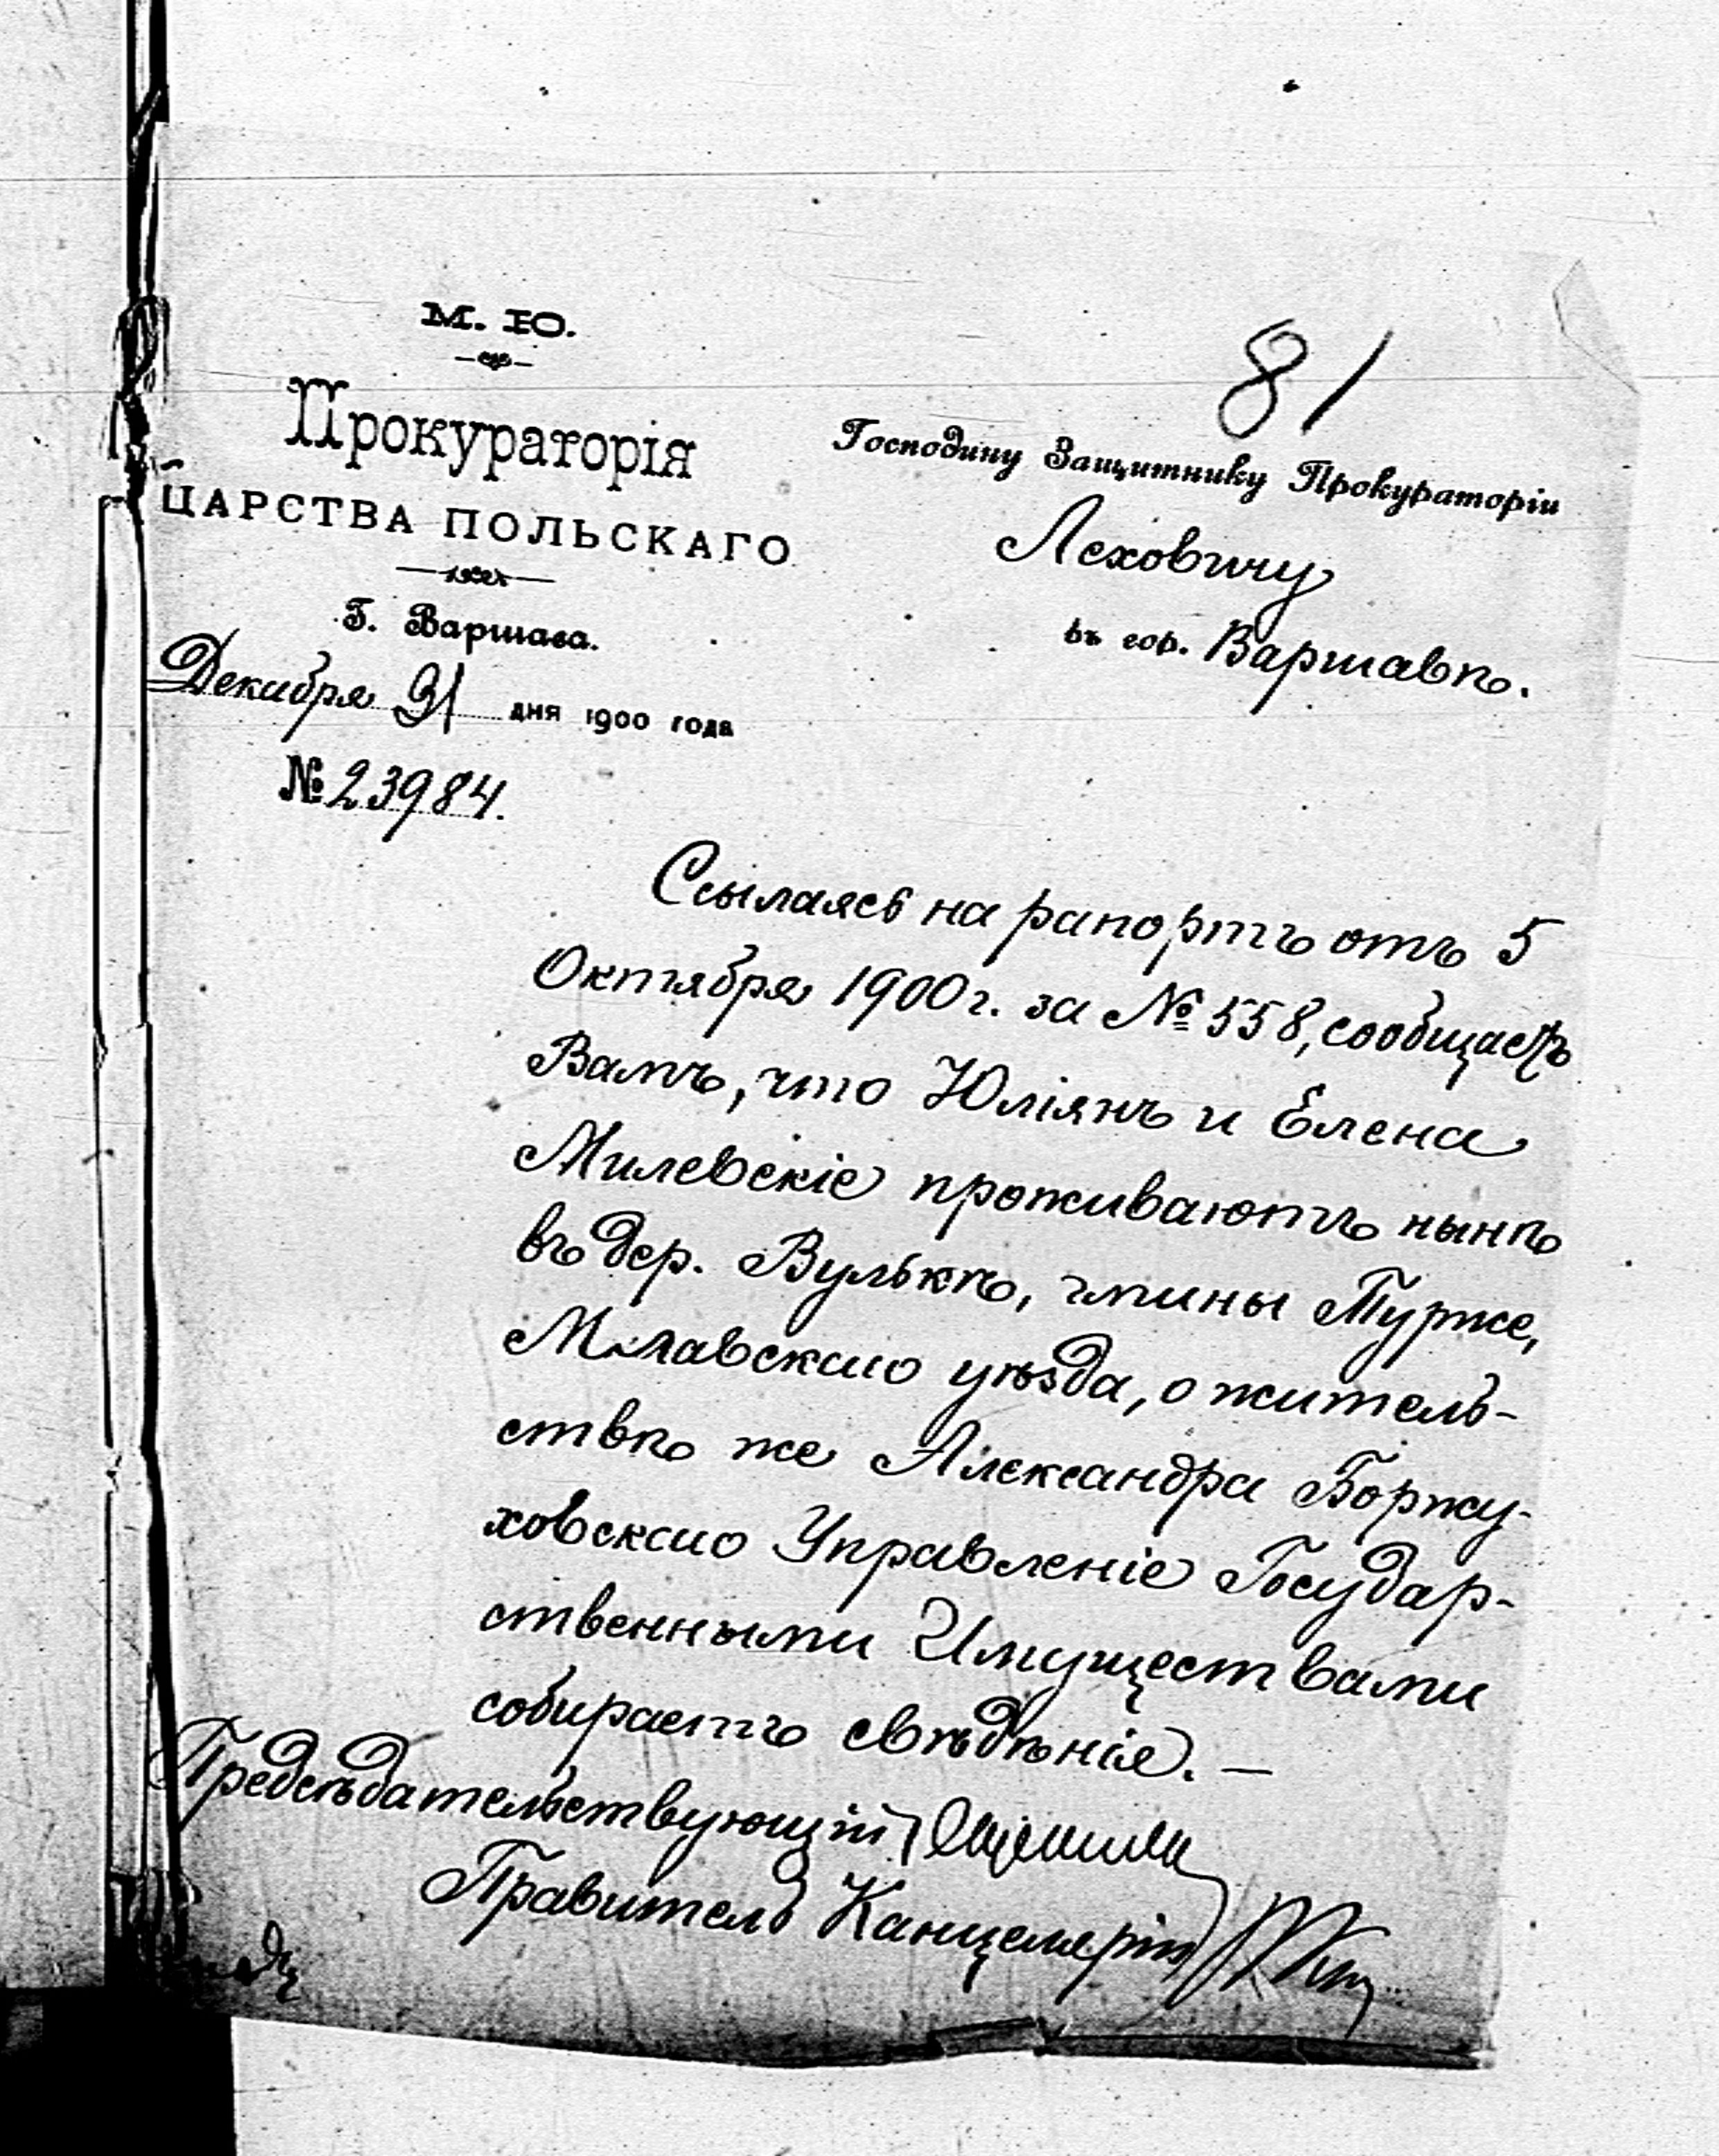 М. Ю.
Прокураторія
ЦАРСТВА ПОЛЬСКАГО
Г. Варшава.
Декабря 31 дня 1900 года
№ 23984.
81
Господину Защитнику Прокураторіи
Леховичу
въ гор. Варшавѣ.
Ссылаясь на рапортъ отъ 5
Октября 1900 г. за № 558, сообщаетъ
Вамъ, что Юліянъ и Елена
Милевскіе проживаютъ нынѣ
въ дер. Вулькѣ, гмины Турже,
Млавскаго уѣзда, о житель-
ствѣ же Александра Боржу-
ховскаго Управленіе Государ-
ственными Имуществами
собираетъ свѣдѣнія. —
Предсѣдательствующій
Правитель Канцеляріи